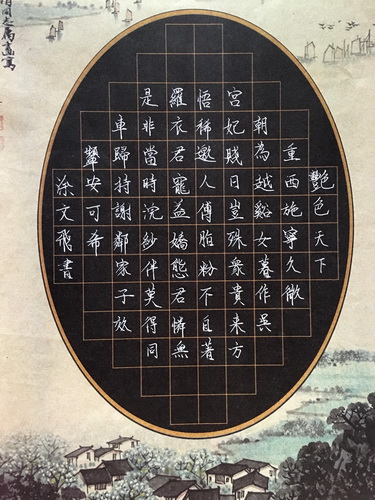 艷色天下
重西施寧久微
朝為越谿女暮作吳
宮妃賤日豈殊衆貴来方
悟稀邀人傅脂粉不自著
羅衣君寵益嬌態君憐無
是非當時浣紗伴莫得同
車歸持謝鄰家子效
顰安可希
涂文飛書